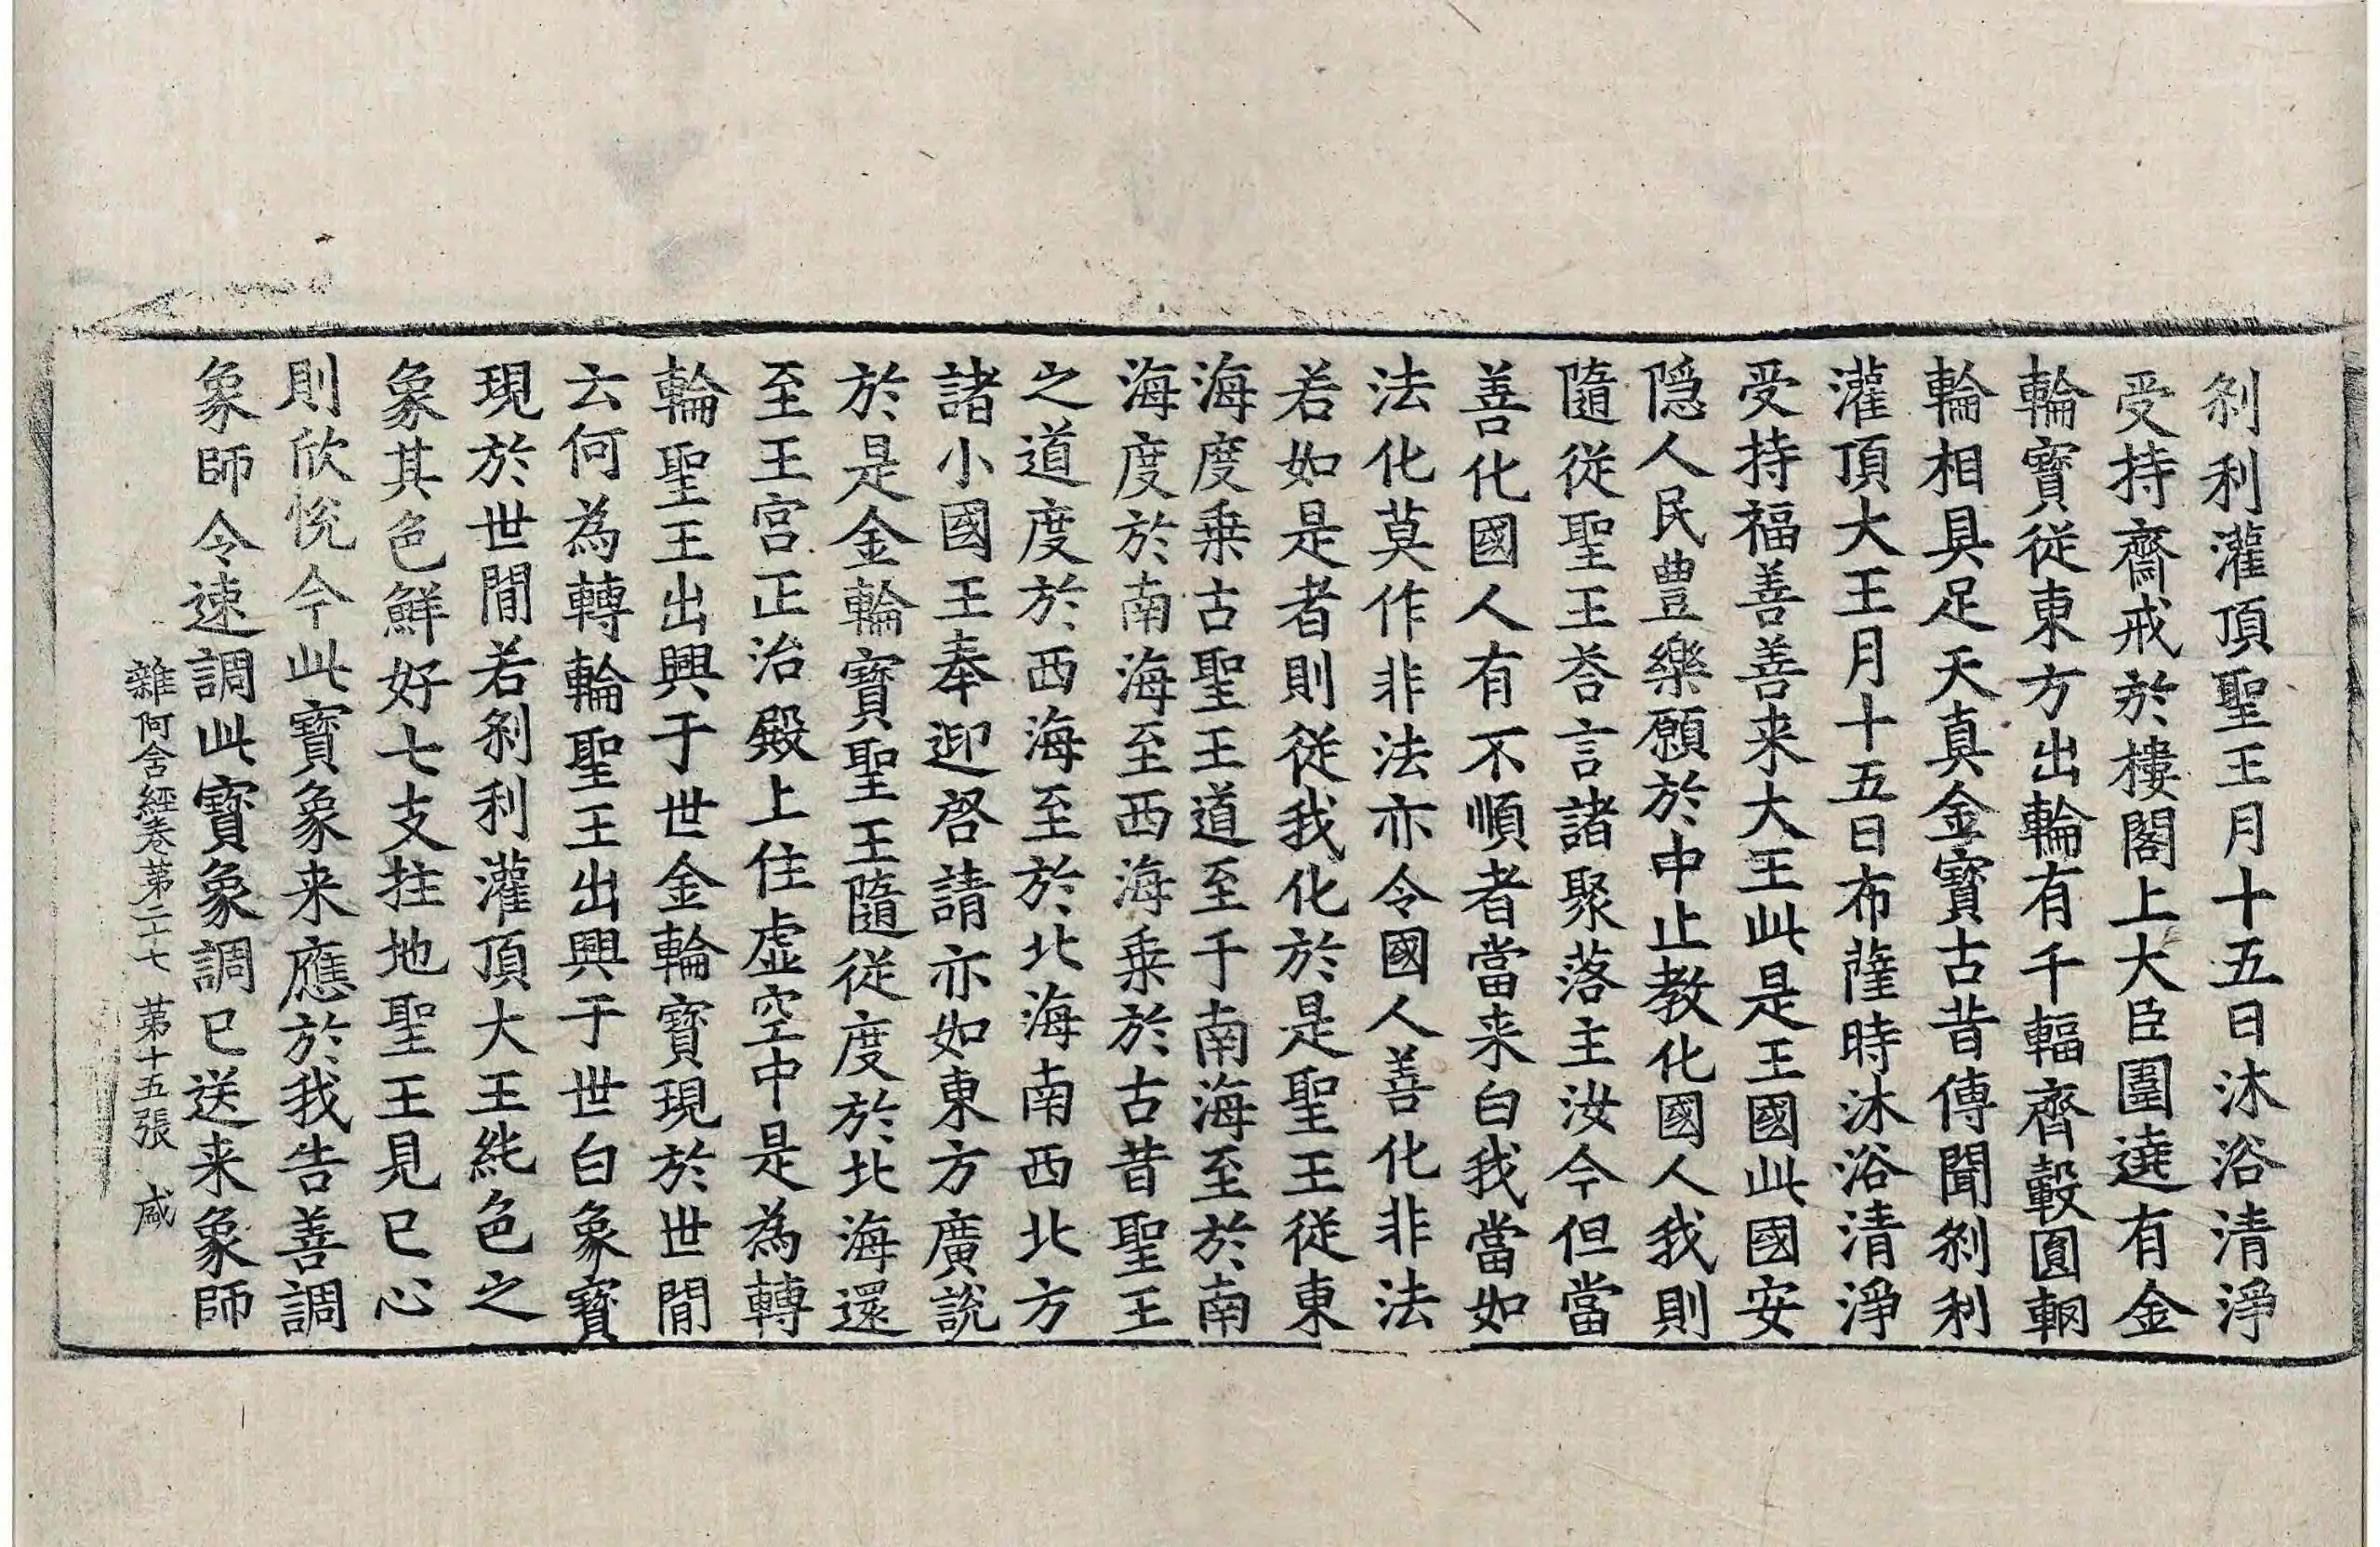 刹利灌頂聖王月十五日沐浴清淨
受持齋戒於樓閣上大臣圍遶有金
輪寶從東方出輪有千輻齊轂圓輞
輪相具足天真金寶古昔傳聞刹利
灌頂大王月十五日布薩時沐浴清淨
受持福善善来大王此是王國此國安
隱人民豊樂願於中止教化國人我則
隨從聖王荅言諸聚落主汝今但當
善化國人有不順者當来白我當如
法化莫作非法亦令國人善化非法
若如是者則從我化於是聖王從東
海度乗古聖王道至于南海至於南
海度於南海至西海乗於古昔聖王
之道度於西海至於北海南西北方
諸小國王奉迎啓請亦如東方廣說
於是金輪寶聖王隨從度於北海還
至王宫正治殿上住虚空中是為轉
輪聖王出興于世金輪寶現於世間
云何為轉輪聖王出興于世白象寶
現於世間若刹利灌頂大王純色之
象其色鮮好七支拄地聖王見已心
則欣悅今此寶象来應於我告善調
象師令速調此寶象調已送来象師
雜阿含經卷第二十七 第十五張 咸